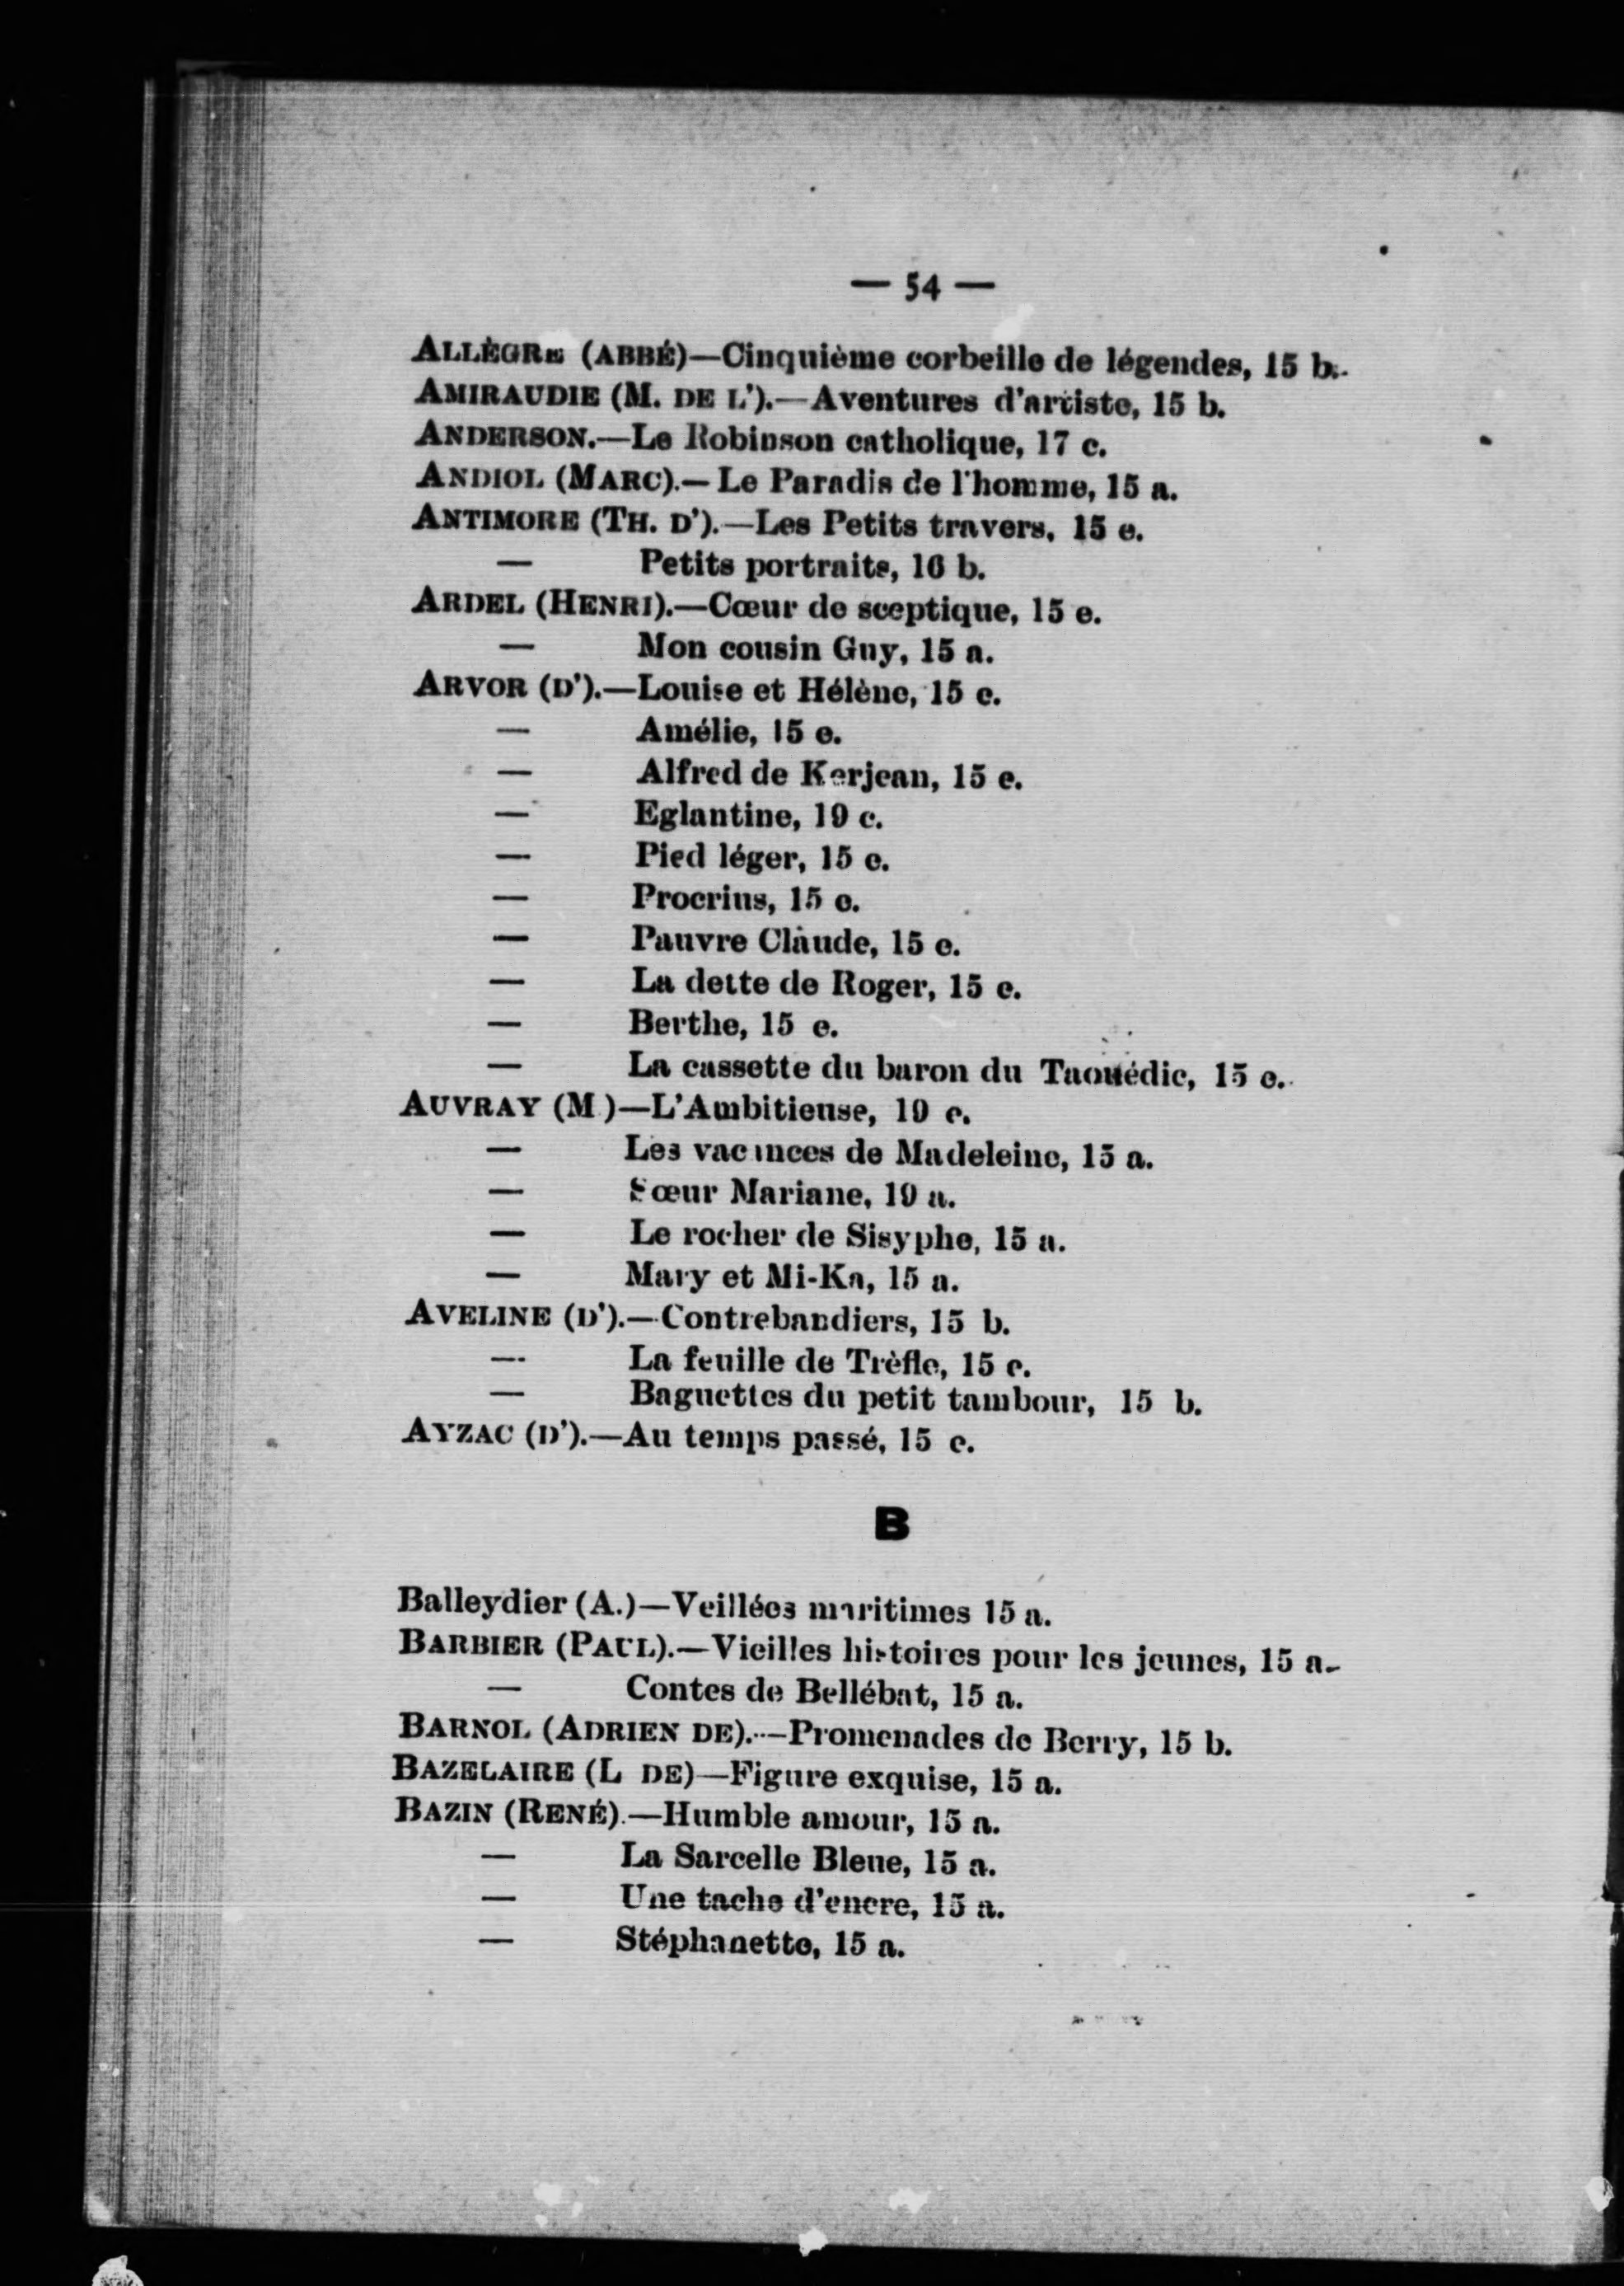 — 54 —
ALLÈGRE (ABBÉ)—Cinquième corbeille de légendes, 15 b.
AMIRAUDIE (M. DE L').—Aventures d'artiste, 15 b.
ANDERSON.—Le Robinson catholique, 17 c.
ANDIOL (MARC).—Le Paradis de l'homme, 15 a.
ANTIMORE (TH. D').—Les Petits travers, 15 e.
— Petits portraits, 16 b.
ARDEL (HENRI).—Cœur de sceptique, 15 e.
— Mon cousin Guy, 15 a.
ARVOR (D').—Louise et Hélène, 15 c.
— Amélie, 15 e.
— Alfred de Kerjean, 15 e.
— Eglantine, 19 c.
— Pied léger, 15 c.
— Procrius, 15 c.
— Pauvre Claude, 15 c.
— La dette de Roger, 15 c.
— Berthe, 15 e.
— La cassette du baron du Taouédic, 15 c.
AUVRAY (M )—L'Ambitieuse, 19 c.
— Les vacances de Madeleine, 15 a.
— Sœur Mariane, 19 a.
— Le rocher de Sisyphe, 15 a.
— Mary et Mi-Ka, 15 a.
AVELINE (D').—Contrebandiers, 15 b.
— La feuille de Trèfle, 15 c.
— Baguettes du petit tambour, 15 b.
AYZAC (D').—Au temps passé, 15 c.
B
Balleydier (A.)—Veillées maritimes 15 a.
BARBIER (PAUL).—Vieilles histoires pour les jeunes, 15 a.
— Contes de Bellébat, 15 a.
BARNOL (ADRIEN DE).—Promenades de Berry, 15 b.
BAZELAIRE (L DE)—Figure exquise, 15 a.
BAZIN (RENÉ).—Humble amour, 15 a.
— La Sarcelle Bleue, 15 a.
— Une tache d'encre, 15 a.
— Stéphanette, 15 a.